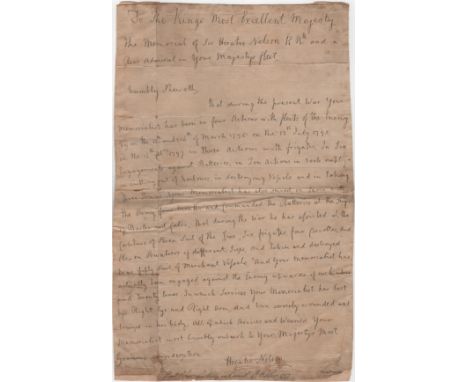 To The Kings Most Excellent Majesty
The Memorial of Sir Horatio Nelson K B and a
Rear Admiral in Your Majestys fleet
Humbly Sheweth
That during the present War Your
Memorialist has been in four Actions with fleets of the Enemy
on the 13 and 14th of March 1795 on the 13th July 1795
in the 1797 in three Actions with frigates In Six
Engagements against Batteries, in Ten Actions in Boats
of Harbours, in destroying Vessels and in Taking
Your Memorialist has also served on Shore with
the Army four and commanded the Batteries at the Sieges
of and Calvi, That during the War he has assisted at the
Capture of Seven Sail of the Line, Six frigates four Corvettes, and
Eleven Privateers of different Sizes, and Taken and destroyed
near fifty Sail of Merchant Vessels And Your Memorialist has
been engaged against the Enemy upwards of
and Twenty times. In which Services Your Memorialist has lost
his Right Eye and Right Arm and been severely wounded and
bruised in his body. All of which Services and Wounds Your
Memorialist most humbly submits to Your Majestys Most
Gracious Consideration
Horatio Nelson